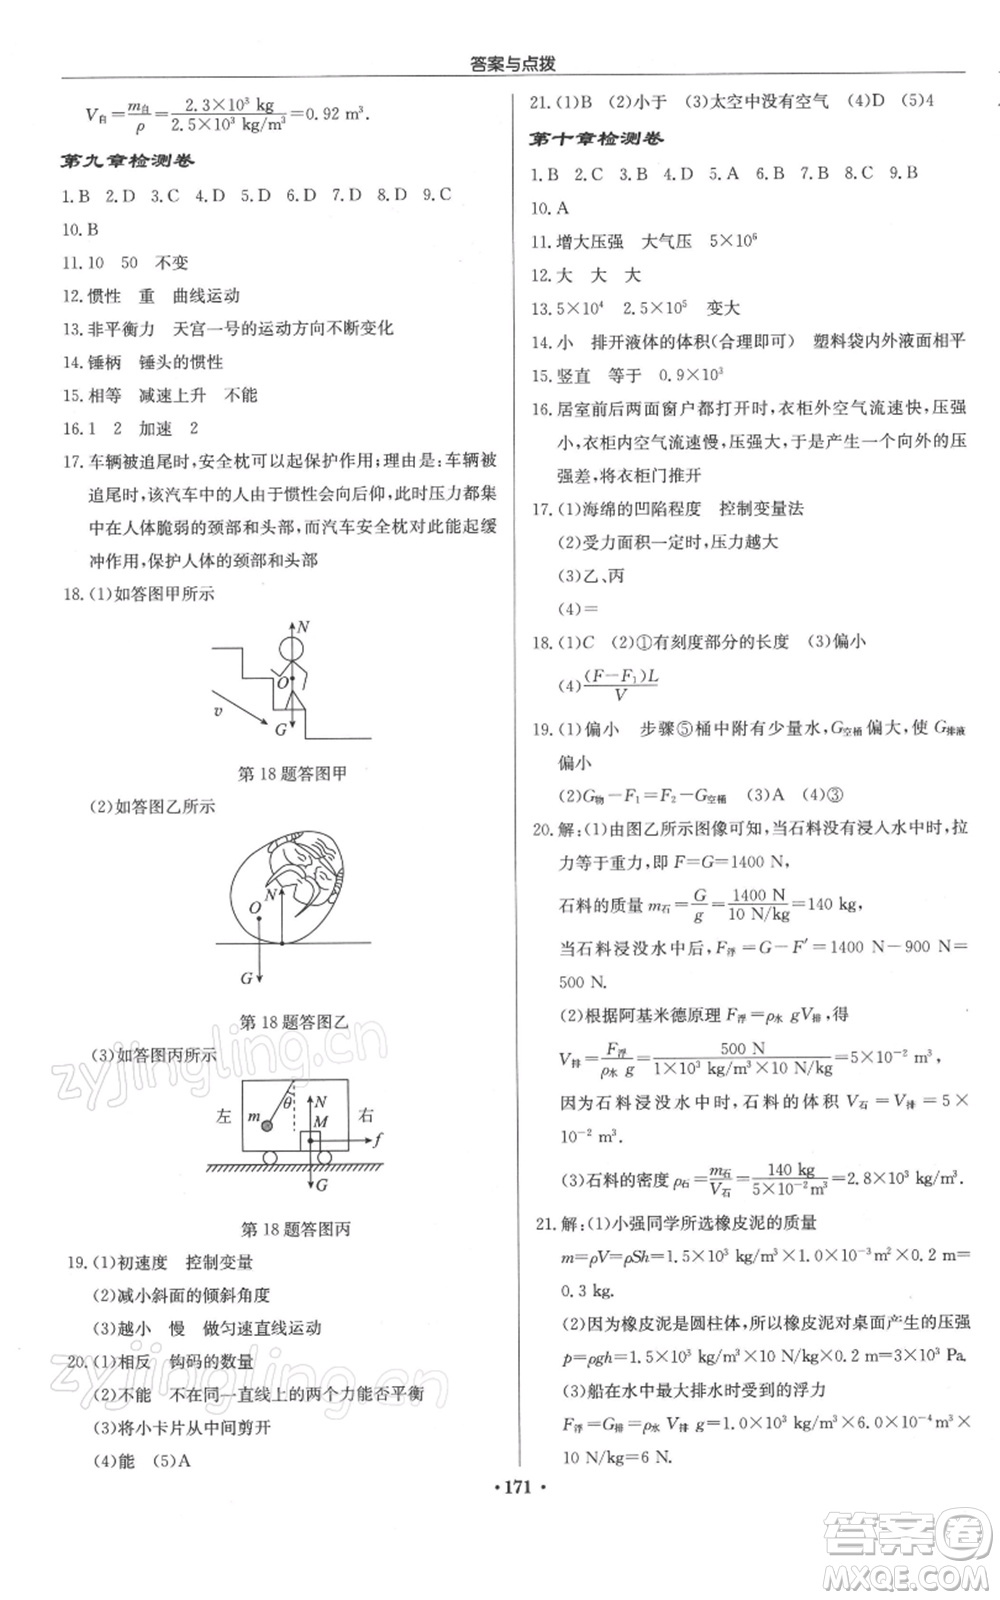 答案与点拨
V白=m白/ρ=2.3×10³ kg/2.5×10³ kg/m³=0.92 m³.
第九章检测卷
1.B 2.D 3.C 4.D 5.D 6.B 7.D 8.D 9.C
10.B
11.10 50 不变
12.惯性 重 曲线运动
13.非平衡力 天宫一号的运动方向不断变化
14.锤柄 锤头的惯性
15.相等 减速上升 不能
16.1 2 加速 2
17.车辆被追尾时,安全枕可以起保护作用;理由是:车辆被
追尾时,该汽车中的人由于惯性会向后仰,此时压力都集
中在人体脆弱的颈部和头部,而汽车安全枕对此能起缓
冲作用,保护人体的颈部和头部
18.(1)如答图甲所示
N
O
v
G
第18题答图甲
(2)如答图乙所示
N
O
G
第18题答图乙
(3)如答图丙所示
左 m θ N M 右
f
G
第18题答图丙
19.(1)初速度 控制变量
(2)减小斜面的倾斜角度
(3)越小 慢 做匀速直线运动
20.(1)相反 钩码的数量
(2)不能 不在同一直线上的两个力能否平衡
(3)将小卡片从中间剪开
(4)能 (5)A
21.(1)B (2)小于 (3)太空中没有空气 (4)D (5)4
第十章检测卷
1.B 2.C 3.D 4.D 5.A 6.B 7.B 8.C 9.B
10.A
11.增大压强 大气压 5×10⁶
12.大 大 大
13.5×10⁴ 2.5×10⁵ 变大
14.小 排开液体的体积(合理即可) 塑料袋内外液面相平
15.竖直 等于 0.9×10³
16.居室前后两面窗户都打开时,衣柜外空气流速快,压强
小,衣柜内空气流速慢,压强大,于是产生一个向外的压
强差,将衣柜门推开
17.(1)海绵的凹陷程度 控制变量法
(2)受力面积一定时,压力越大
(3)乙、丙
(4)=
18.(1)C (2)①有刻度部分的长度 (3)偏小
(4)(F-F₁)L/V
19.(1)偏小 步骤⑤桶中附有少量水,G空桶偏大,使G排液
偏小
(2)G物-F₁=F₂-G空桶 (3)A (4)③
20.解:(1)由图乙所示图像可知,当石料没有浸入水中时,拉
力等于重力,即F=G=1400 N,
石料的质量m石=G/g=1400 N/10 N/kg=140 kg,
当石料浸没水中后,F浮=G-F′=1400 N-900 N=
500 N.
(2)根据阿基米德原理F浮=ρ水 gV排,得
V排=F浮/ρ水 g=500 N/1×10³ kg/m³×10 N/kg=5×10⁻² m³,
因为石料浸没水中时,石料的体积V石=V排=5×
10⁻² m³.
(3)石料的密度ρ石=m石/V石=140 kg/5×10⁻² m³=2.8×10³ kg/m³.
21.解:(1)小强同学所选橡皮泥的质量
m=ρV=ρSh=1.5×10³ kg/m³×1.0×10⁻³m²×0.2 m=
0.3 kg.
(2)因为橡皮泥是圆柱体,所以橡皮泥对桌面产生的压强
p=ρgh=1.5×10³ kg/m³×10 N/kg×0.2 m=3×10³ Pa.
(3)船在水中最大排水时受到的浮力
F浮=G排=ρ水 V排 g=1.0×10³ kg/m³×6.0×10⁻⁴m³×
10 N/kg=6 N.
·171·
zyjingling.cn
zyjingling.cn
答案圈
MXQE.COM